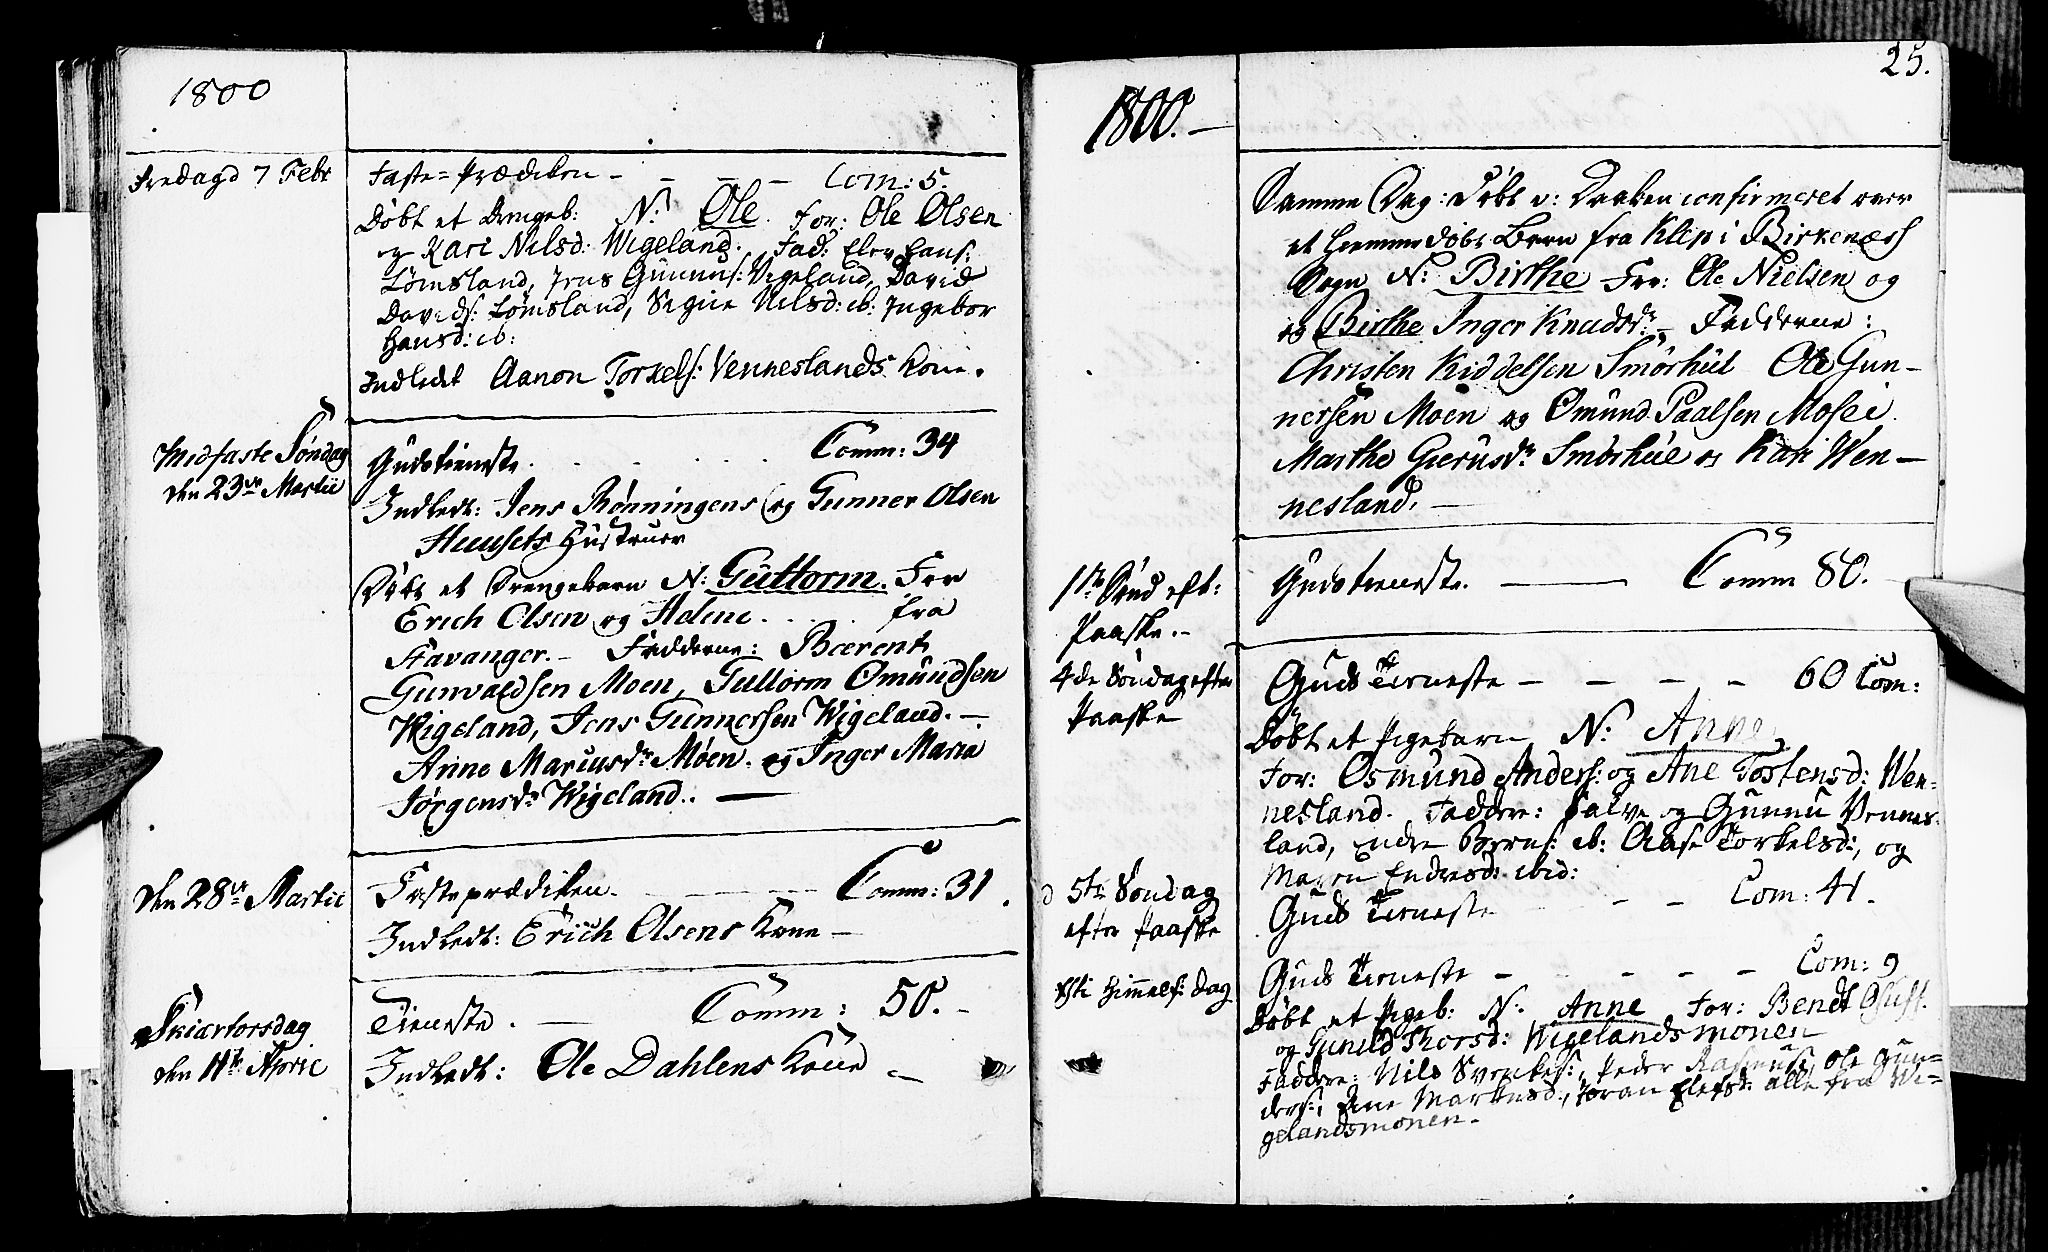 1800
Fredag d 7 Febr
Faste=Prædiken - - - - Com: 5.
Døbt et Drengeb: N: Ole. For: Ole Olsen
og Kari Nilsd: Wigeland. Fad: Elev Hans:
Lømsland, Jens Gunnus: Vigeland, David
Davids: Lømsland, Signe Nilsd: ib: Ingebor
Hansd: ib:
Indledt Aanon Torkels: Venneslands Kone.
Midfaste Søndag
den 23de Martii
Gudstieneste. . . . . . Comm: 34
Indledt: Jens Rønningens og Gunner Olsen
Huusets Hustruer
Døbt et Drengebarn N: Guttorm. For
Erich Olsen og Helene . . . . fra
Stavanger. - Fadderne: Bærent
Gunvaldsen Moen, Guttorm Omundsen
Wigeland, Jens Gunnersen Wigeland. -
Anne Mariusdr Møen. og Inger Maria
Jørgensdr Wigeland. . —
den 28de Martii
Fasteprædiken. - - - - Comm: 31.
Indledt: Erich Olsens Kone —
Skiærtorsdag
den 11te April
Tieneste. — Comm: 50. -
Indledt: Ole Dahlens Kone -
25.
1800. —
Samme Dag: Døbt v: Daaben confirmeret over
et hiemmedøbt Barn fra Klip i Birkenæss
Sogn N: Birthe For: Ole Nielsen og
og Birthe Inger Knudsdr: - Fadderne:
Christen Kiddelsen Smørhül Ole Gun-
nersen Moen og Omund Paalsen Mosei
Marthe Gierusdr Smørhüe og Kari Wen-
nesland. —
1ste Sønd eft:
Paaske. -
Gudstieneste. —— Comm 80.
4de Søndag efter
Paaske
Guds Tieneste - - - - 60 Com:
Døbt et Pigebarn N: Anne
For: Osmund Anders: og Ane Tostensd: Wen-
nesland. Faddere: Salve og Gunnu Vennes-
land, Endre Berns: ib: Aase Torkelsd:, og
Maren Endresd: ibid:
d 5te Søndag
efter Paaske
Guds Tieneste - - Com: 41.
Xsti Himmelf: Dag
Guds Tieneste - - - - - Com: 9
Døbt et Pigeb: N: Anne For: Bendt Olufs.
og Gunild Thorsd: Wigelandsmonen
Faddere: Nils Svenkes:, Peder Rasmus:, Ole Gun=
ders:, Ane Markusd:, Joran Elefsd: alle fra Wi=
gelandsmonen.